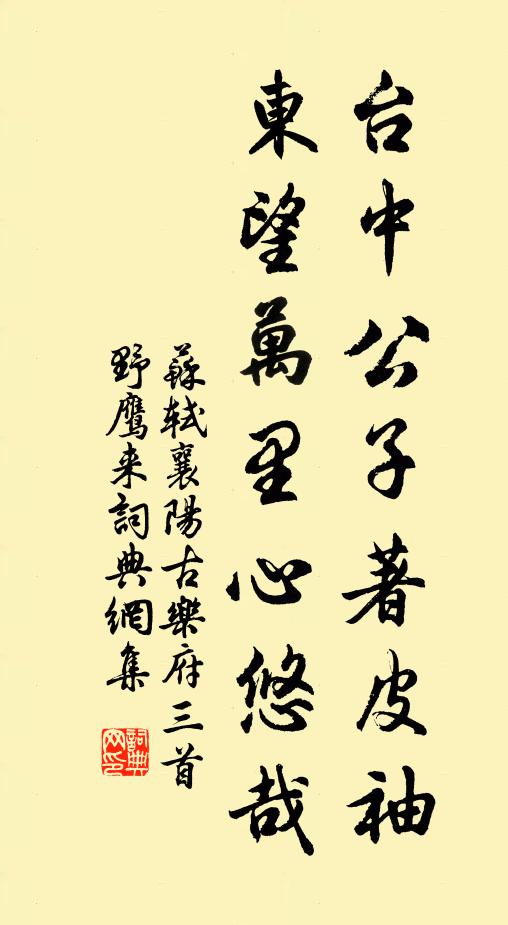 台中公子著皮袖
東望萬里心悠哉
蘇軾襄陽古樂府三首
野鷹来詞典網集
詞典
网印